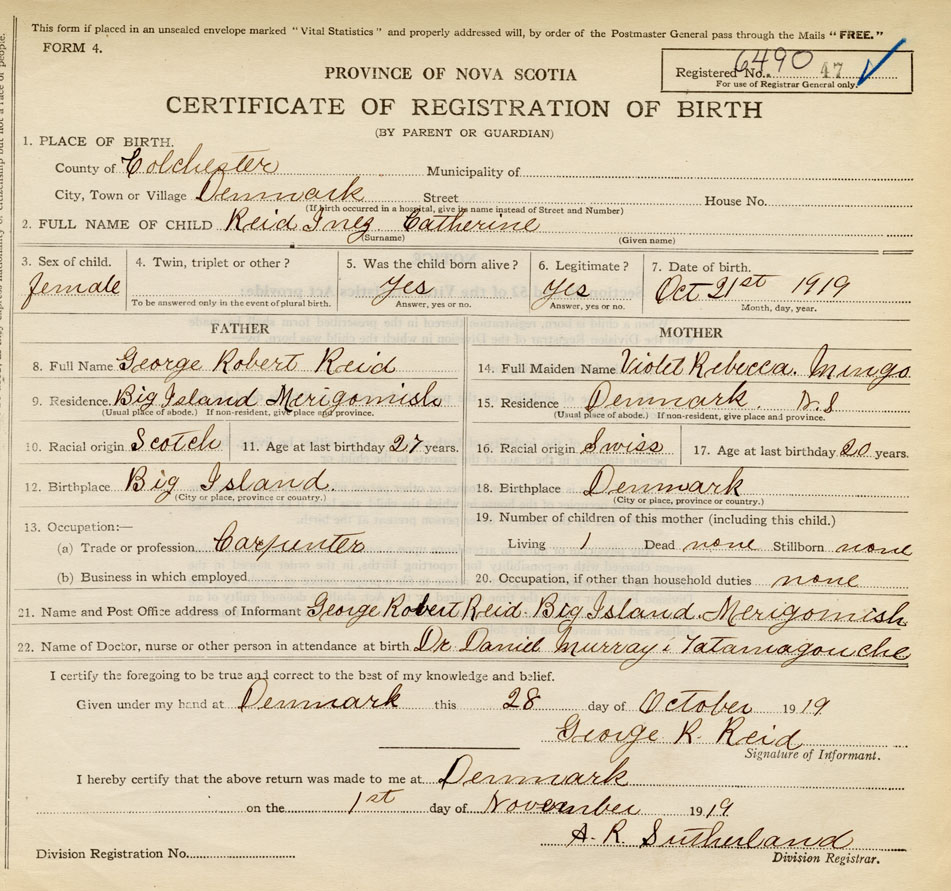 This form if placed in an unsealed envelope marked "Vital Statistics" and properly addressed will, by order of the Postmaster General pass through the Mails "FREE."
FORM 4.
Registered No. 6490 47
For use of Registrar General only.
PROVINCE OF NOVA SCOTIA
CERTIFICATE OF REGISTRATION OF BIRTH
(BY PARENT OR GUARDIAN)
1. PLACE OF BIRTH.
County of Colchester Municipality of
City, Town or Village Denmark Street House No.
(If birth occurred in a hospital, give its name instead of Street and Number)
2. FULL NAME OF CHILD Reid Inez Catherine
(Surname) (Given name)
3. Sex of child. 4. Twin, triplet or other? 5. Was the child born alive? 6. Legitimate? 7. Date of birth.
female Yes Yes Oct 21st 1919
To be answered only in the event of plural birth. Answer, yes or no. Answer, yes or no. Month, day, year.
FATHER MOTHER
8. Full Name George Robert Reid 14. Full Maiden Name Violet Rebecca. Mingo
9. Residence. Big Island Merigomish 15. Residence Denmark. N.S
(Usual place of abode.) If non-resident, give place and province. (Usual place of abode.) If non-resident, give place and province.
10. Racial origin Scotch 11. Age at last birthday 27 years. 16. Racial origin Swiss 17. Age at last birthday 20 years.
12. Birthplace Big Island. 18. Birthplace Denmark
(City or place, province or country.) (City or place, province or country.)
13. Occupation:— 19. Number of children of this mother (including this child.)
(a) Trade or profession Carpenter Living 1 Dead none Stillborn none
(b) Business in which employed 20. Occupation, if other than household duties none
21. Name and Post Office address of Informant George Robert Reid Big Island Merigomish
22. Name of Doctor, nurse or other person in attendance at birth Dr. Daniel Murray, Tatamagouche
I certify the foregoing to be true and correct to the best of my knowledge and belief.
Given under my hand at Denmark this 28 day of October 1919
George R. Reid
Signature of Informant.
I hereby certify that the above return was made to me at Denmark
on the 1st day of November 1919
A. R. Sutherland
Division Registration No. Division Registrar.